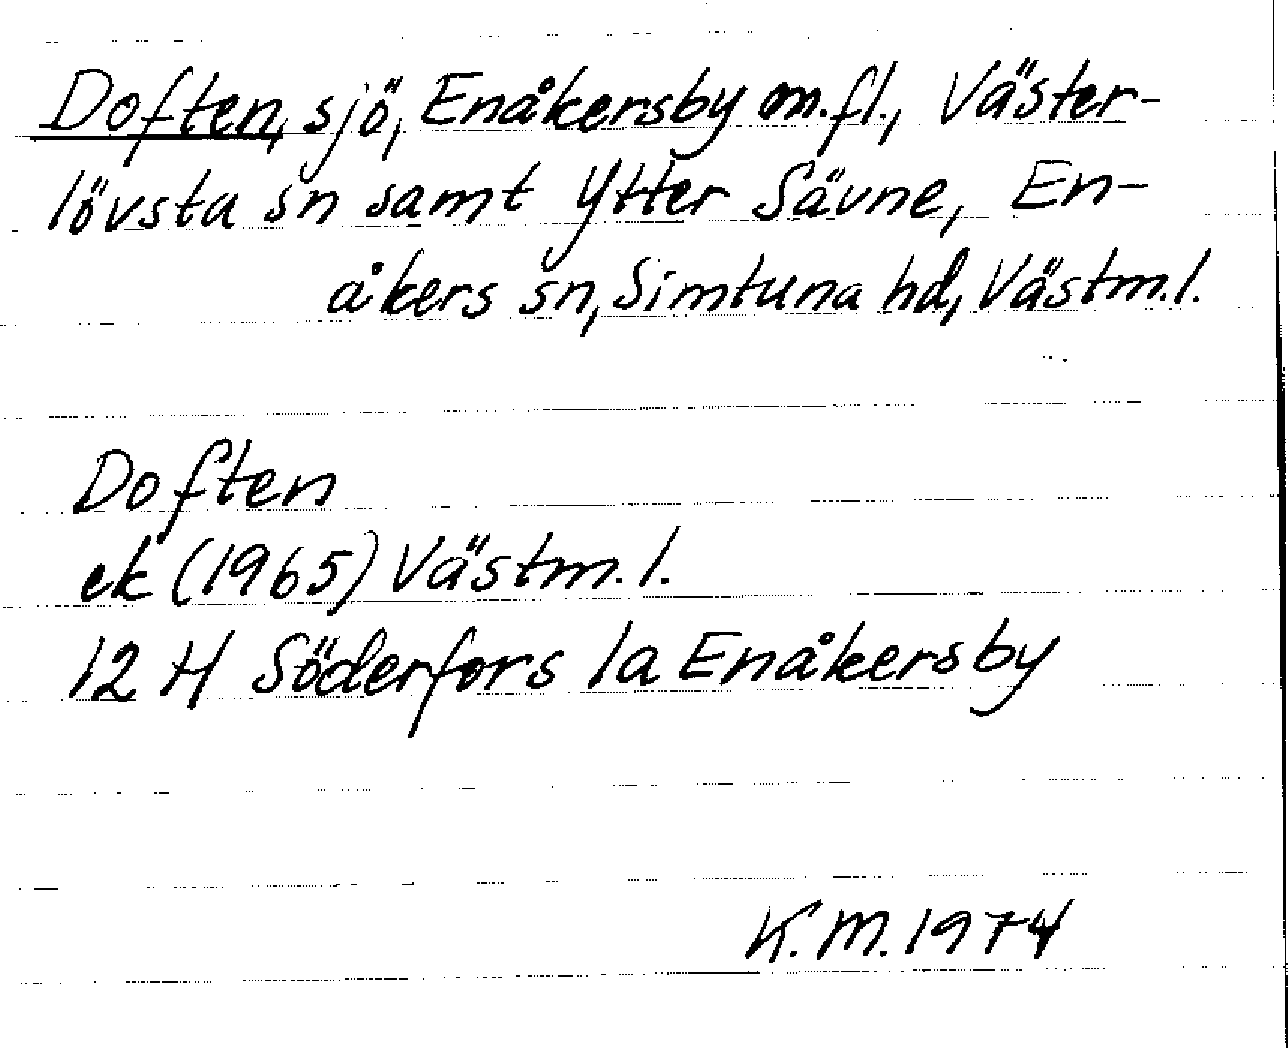 Doften, sjö, Enåkersby m.fl., Väster-
lövsta sn samt Ytter Sävne, En-
åkers sn, Simtuna hd, Västm.l.
Doften
ek (1965) Västm.l.
12 H Söderfors 1a Enåkersby
K.M. 1974